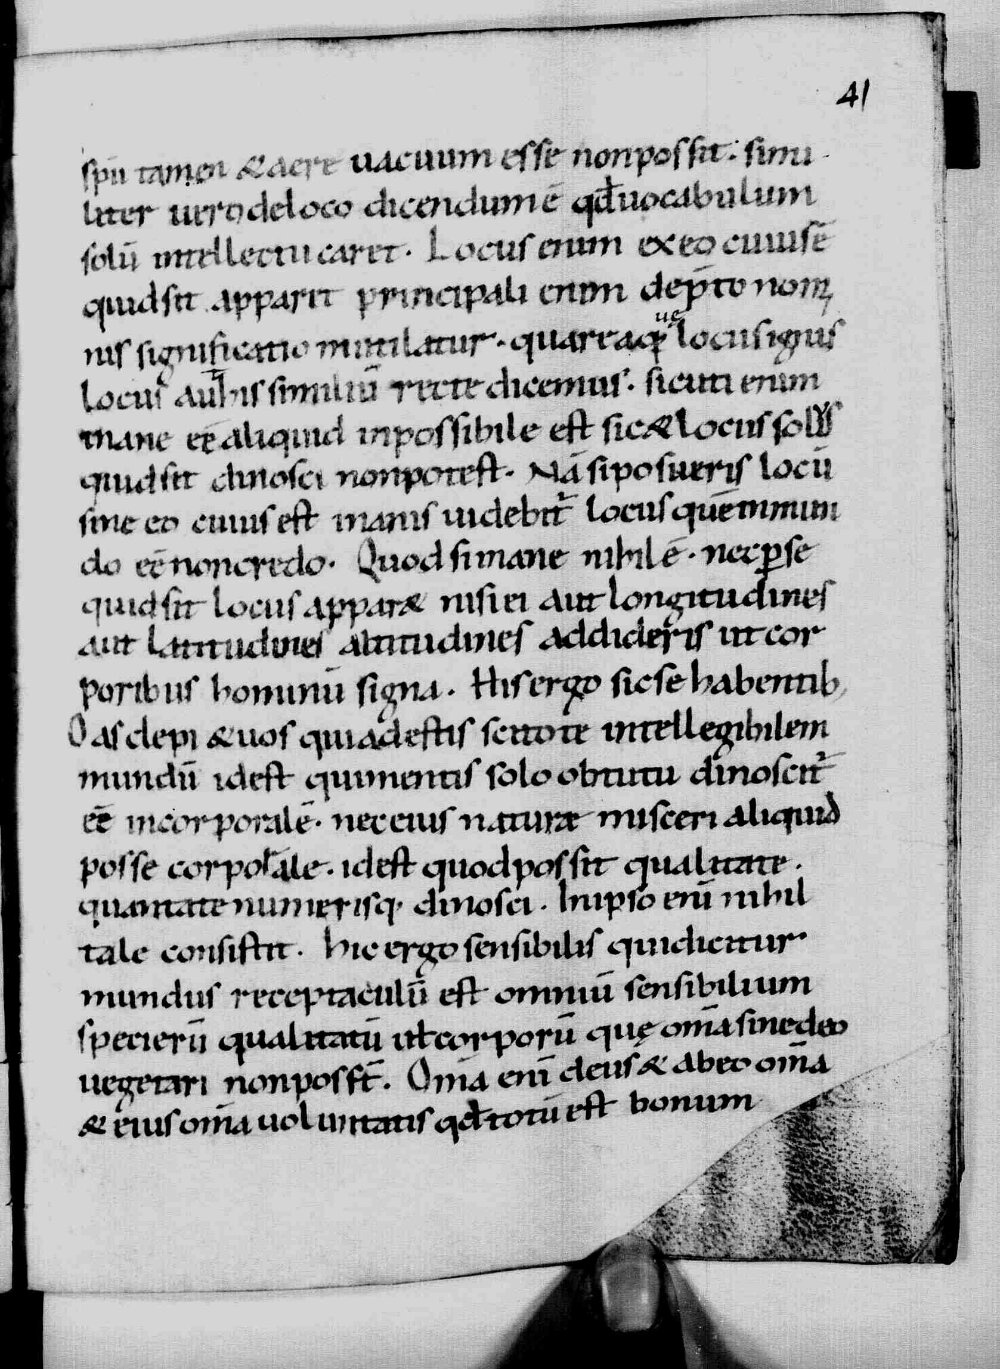 41
spū tamen & aere uacuum esse non possit. simi
liter uero de loco dicendum ē qđ uocabulum
solū intellectu caret. Locus enim ex eo cuius ē
quid sit apparet principali enim dempto nomi
nis significatio mutilatur. quare aquę locus ignis
locus aut his similiū recte dicemus. sicuti enim
inane eē aliquid inpossibile est sic & locus solus
quid sit dinosci non potest. Nā si posueris locū
sine eo cuius est inanis uidebit̄ locus quē in mun
do eē non credo. Quod si inane nihil ē. nec ꝑ se
quid sit locus appar& nisi ei aut longitudines
aut latitudines altitudines addideris ut cor
poribus hominū signa. His ergo sic se habentib;
O asclepi & uos qui adestis scitote intellegibilem
mundū id est qui mentis solo obtutu dinoscit̄
eē incorporalē. nec eius naturæ misceri aliquid
posse corporale. id est quod possit qualitate.
quantitate numerisq. dinosci. In ipso enī nihil
tale consistit. hic ergo sensibilis qui dicitur
mundus receptaculū est omniū sensibilium
specierū qualitatū uł corporū quę om̄a sine deo
uegetari non posst̄. Om̄a enī deus & ab eo om̄a
& eius om̄a uoluntatis qđ totū est bonum